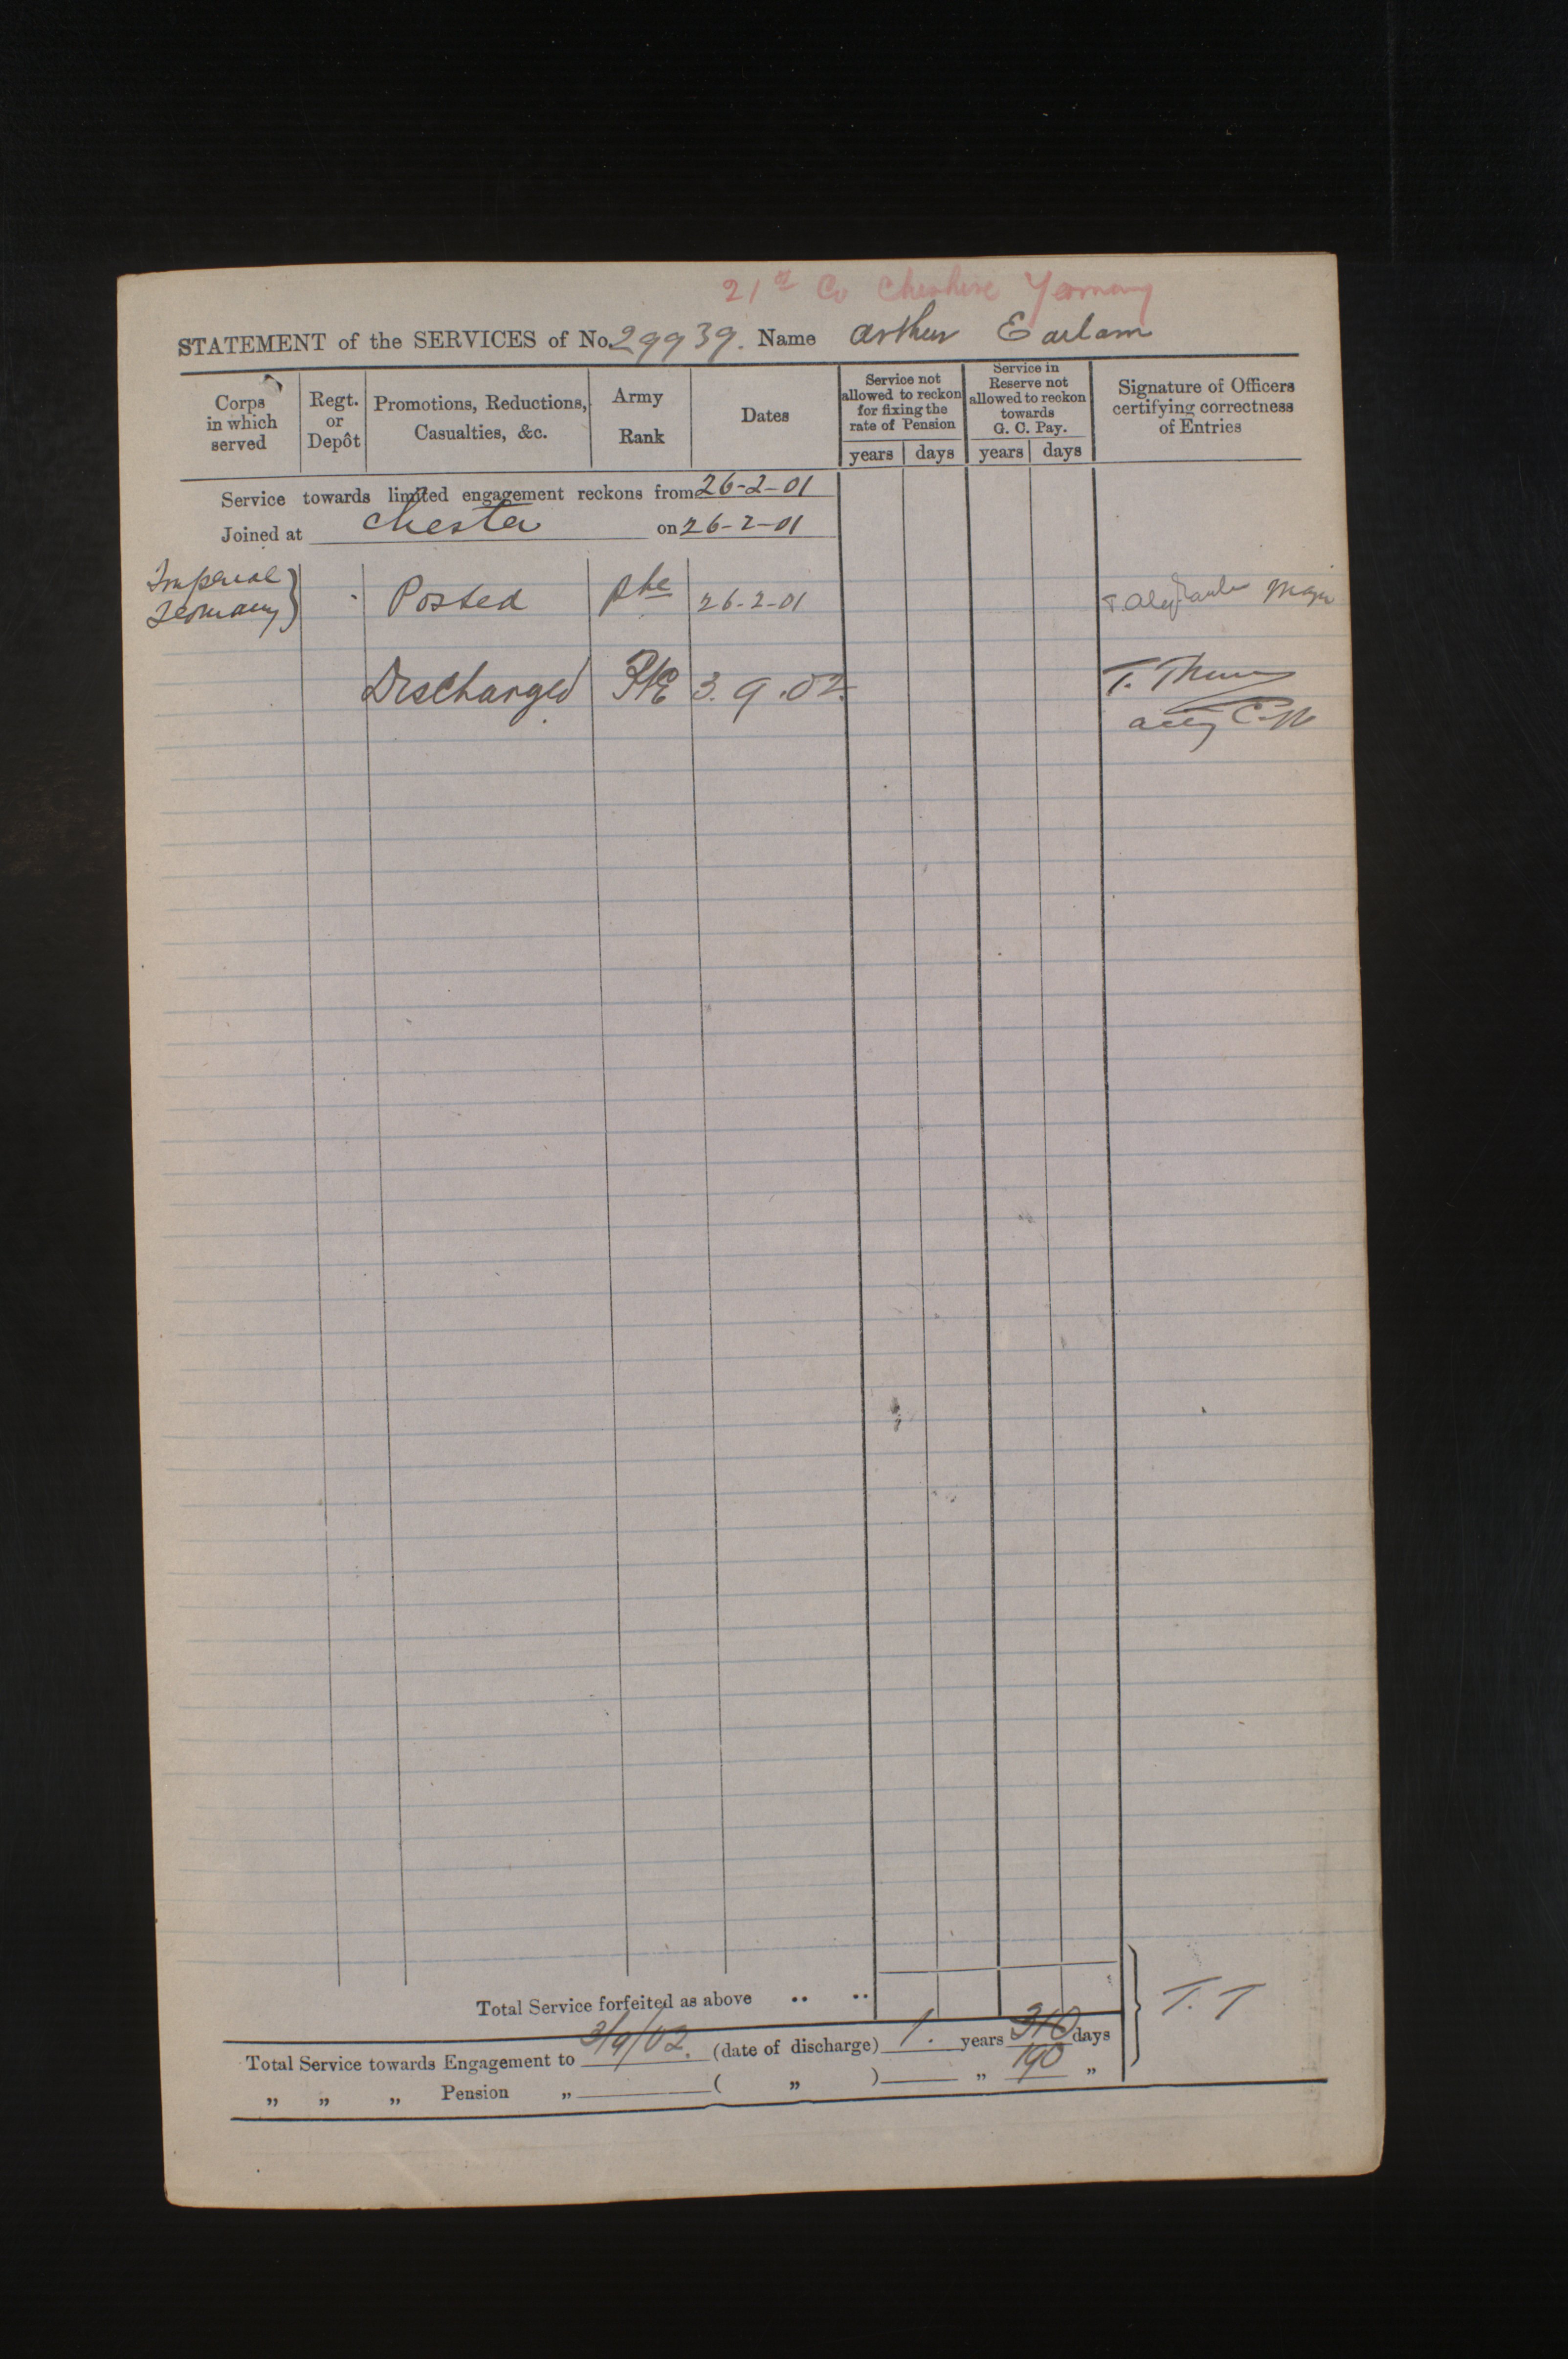 21st Co Cheshire Yeomanry
STATEMENT of the SERVICES of No. 29939. Name Arthur Earlam
Corps in which served
Regt. or Depôt
Promotions, Reductions, Casualties, &c.
Army Rank
Dates
Service not allowed to reckon for fixing the rate of Pension
years days
Service in Reserve not allowed to reckon towards G. C. Pay.
years days
Signature of Officers certifying correctness of Entries
Service towards limited engagement reckons from 26-2-01
Joined at Chester on 26-2-01
Imperial Yeomanry } Posted Pte 26-2-01 Major
Discharged Pte 3.9.02 T.
Total Service forfeited as above .. ..
Total Service towards Engagement to 3/9/02. (date of discharge) 1. years 310 days
190
„ „ „ Pension „ ( „ ) „ „
T.T